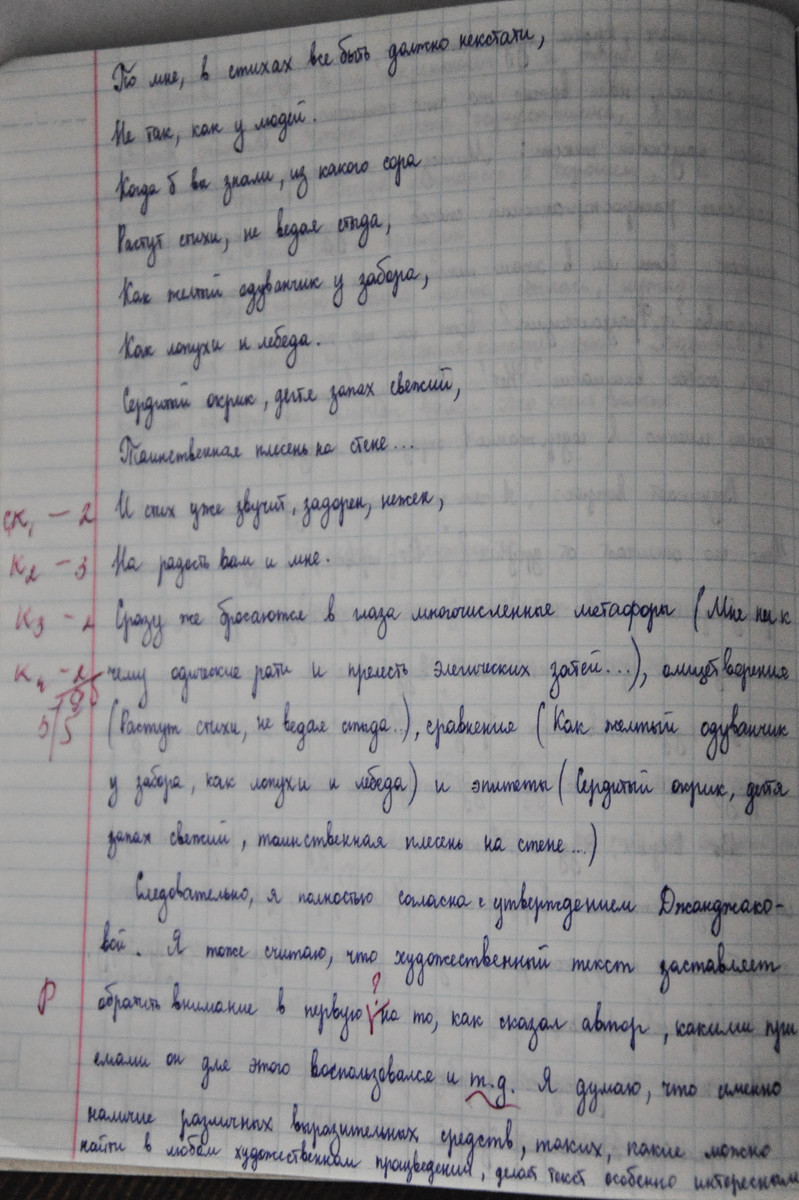 По мне, в стихах все быть должно некстати,
Не так, как у людей.
Когда б вы знали, из какого сора
Растут стихи, не ведая стыда,
Как желтый одуванчик у забора,
Как лопухи и лебеда.
Сердитый окрик, дегтя запах свежий,
Таинственная плесень на стене...
СК1 – 2 И стих уже звучит, задорен, нежен,
К2 – 3 На радость вам и мне.
К3 – 2 Сразу же бросаются в глаза многочисленные метафоры (Мне ни к
К4 – 2 чему одические рати и прелесть элегических затей...), олицетворения
(Растут стихи, не ведая стыда..), сравнения (Как желтый одуванчик
у забора, как лопухи и лебеда) и эпитеты (Сердитый окрик, дегтя
запах свежий, таинственная плесень на стене...)
Следовательно, я полностью согласна с утверждением Джанджако-
вой. Я тоже считаю, что художественный текст заставляет
?
Р обратить внимание в первую на то, как сказал автор, какими при
емами он для этого воспользовался и т.д. Я думаю, что именно
наличие различных выразительных средств, таких, какие можно
найти в любом художественном произведении, делает текст особенно интересным